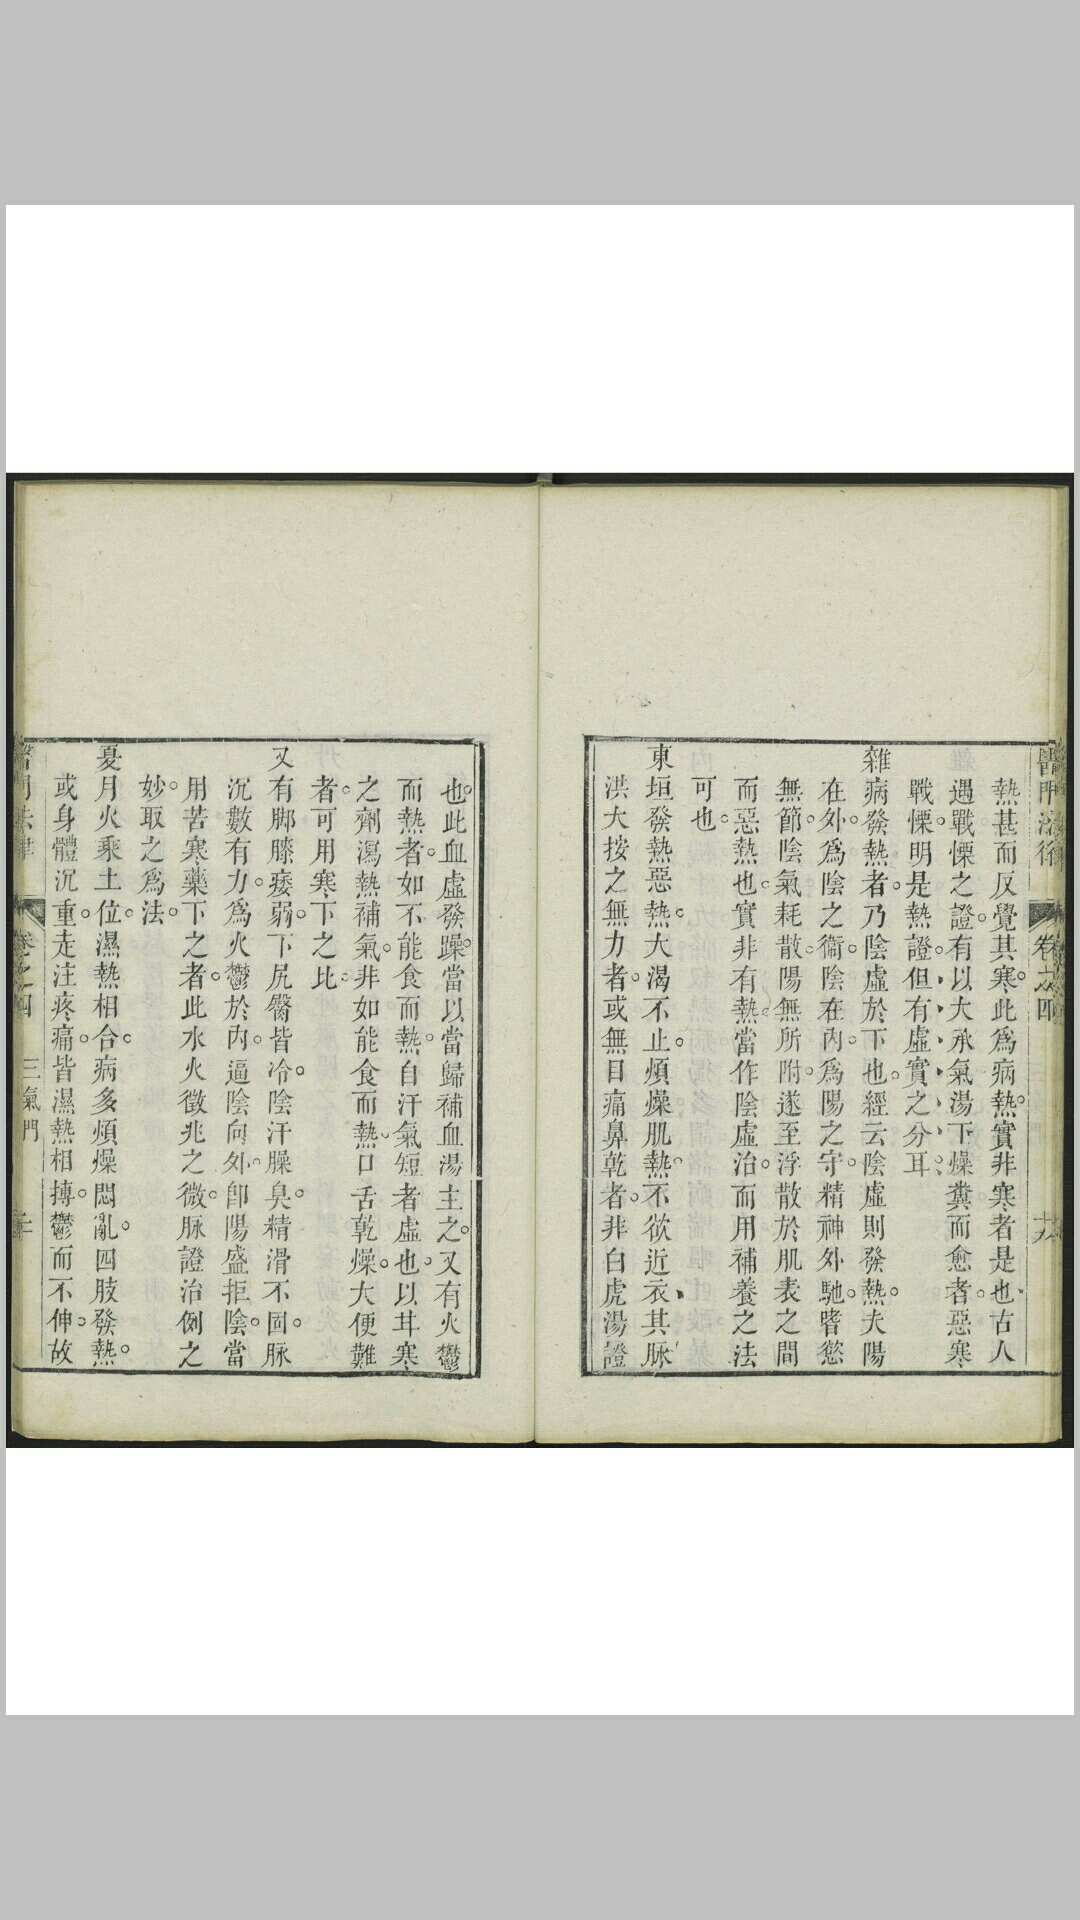 醫門法律
卷之四
十九
熱甚而反覺其寒此爲病熱實非寒者是也古人
遇戰慄之證有以大承氣湯下燥糞而愈者惡寒
戰慄明是熱證但有虛實之分耳
雜病發熱者乃陰虛於下也經云陰虛則發熱夫陽
在外爲陰之衞陰在內爲陽之守精神外馳嗜慾
無節陰氣耗散陽無所附遂至浮散於肌表之間
而惡熱也實非有熱當作陰虛治而用補養之法
可也
東垣發熱惡熱大渴不止煩燥肌熱不欲近衣其脉
洪大按之無力者或無目痛鼻乾者非白虎湯證
也此血虛發躁當以當歸補血湯主之又有火鬱
而熱者如不能食而熱自汗氣短者虛也以甘寒
之劑瀉熱補氣非如能食而熱口舌乾燥大便難
者可用寒下之比
又有脚膝痿弱下尻臀皆冷陰汗臊臭精滑不固脉
沉數有力爲火鬱於內逼陰向外卽陽盛拒陰當
用苦寒藥下之者此水火徵兆之微脉證治例之
妙取之爲法
憂月火乘土位濕熱相合病多煩燥悶亂四肢發熱
或身體沉重走注疼痛皆濕熱相搏鬱而不伸故
卷之四
三氣門